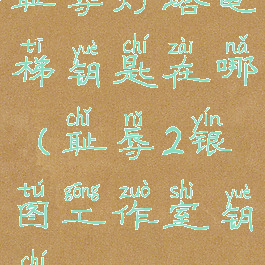 耻辱灯塔电
tī yuè chí zài nǎ
梯钥匙在哪
chǐ rǔ yín
(耻辱2银
tú gōng zuò shì yuè
图工作室钥
chí